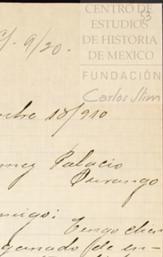 CENTRO DE
ESTUDIOS
DE HISTORIA
DE MEXICO
FUNDACIÓN
Carlos Slim
53
9/20.
bre 18/910
mez Palacio
Durango
migo:
Tengo
ganado de